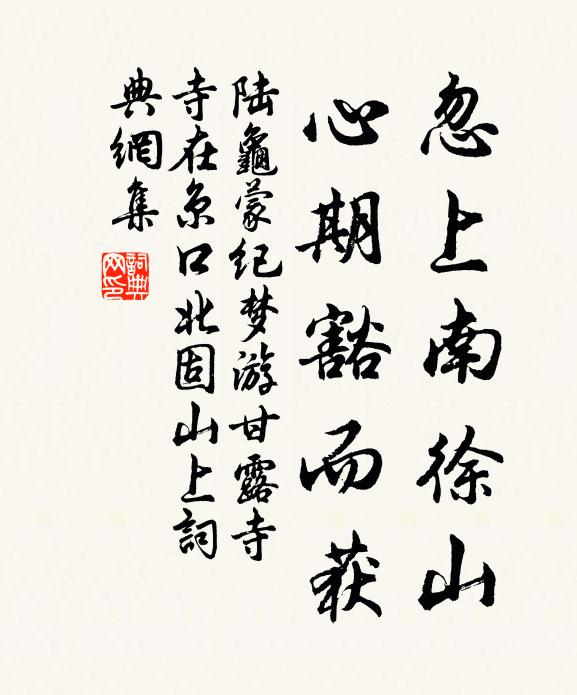 忽上南徐山
心期豁而获
陆龜蒙纪梦游甘露寺
寺在京口北固山上詞
典網集
詞典
网印